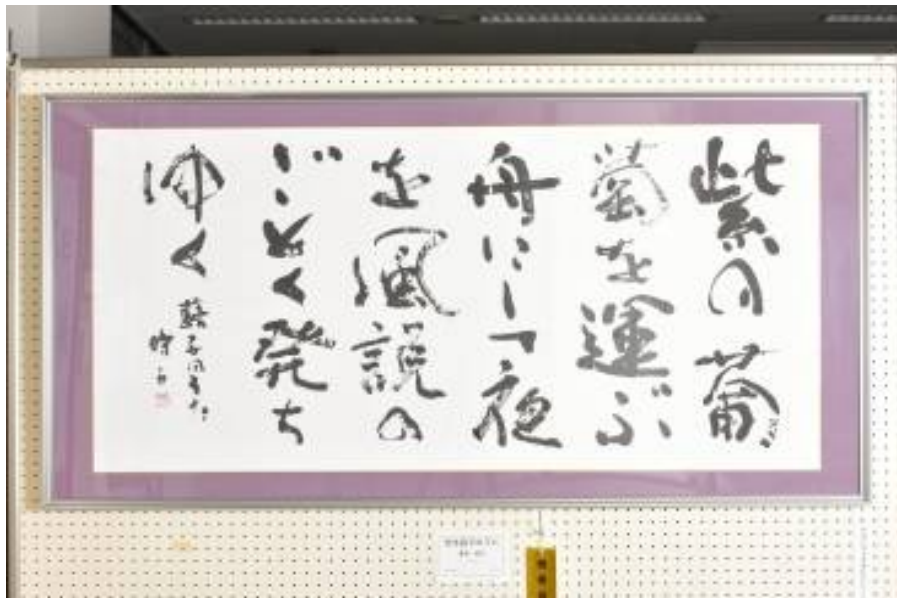 紫の葡
萄を運ぶ
舟にして夜
を風説の
ごとく発ち
ゆく